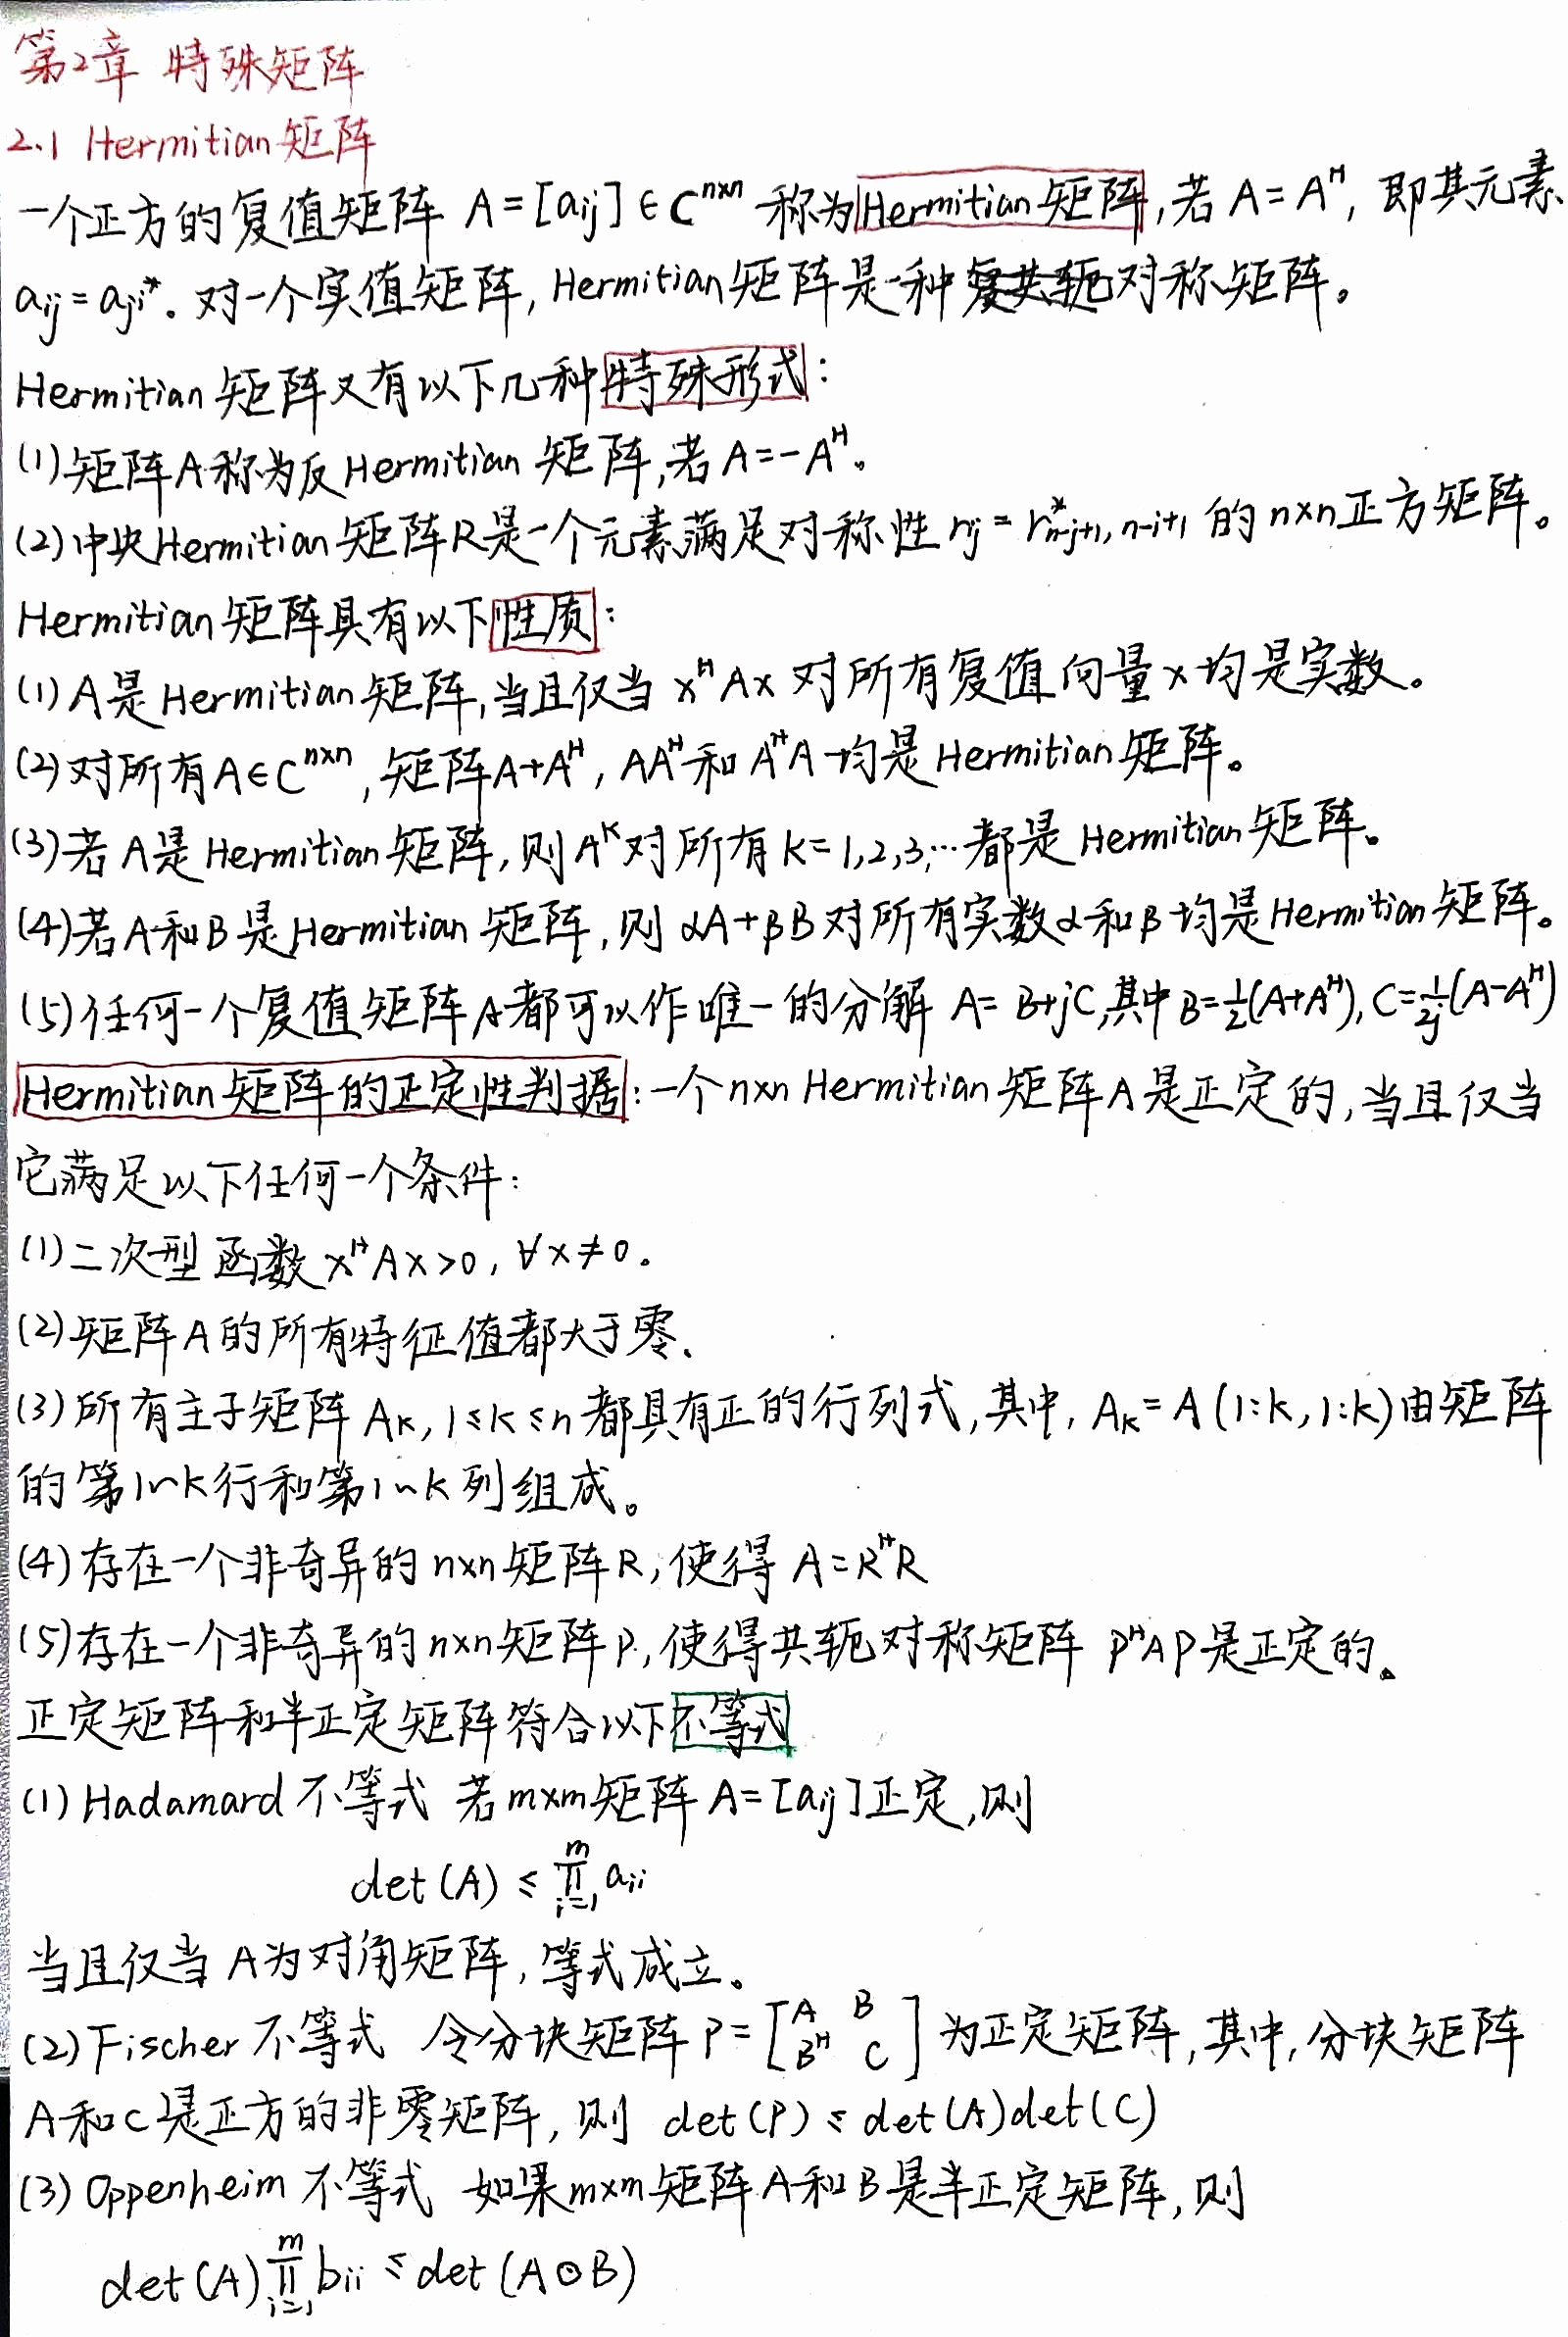 第2章 特殊矩阵
2.1 Hermitian矩阵
一个正方的复值矩阵 A=[aij]∈C^{n×n} 称为Hermitian矩阵,若A=A^H, 即其元素
aij=aji*。对一个实值矩阵,Hermitian矩阵是一种对称矩阵。
Hermitian矩阵又有以下几种特殊形式:
(1)矩阵A称为反Hermitian矩阵,若A=-A^H。
(2)中央Hermitian矩阵R是一个元素满足对称性 rij=r*_{n-j+1,n-i+1} 的n×n正方矩阵。
Hermitian矩阵具有以下性质:
(1)A是Hermitian矩阵,当且仅当 x^H Ax 对所有复值向量x均是实数。
(2)对所有A∈C^{n×n},矩阵A+A^H, AA^H和A^H A均是Hermitian矩阵。
(3)若A是Hermitian矩阵,则A^k对所有k=1,2,3,…都是Hermitian矩阵。
(4)若A和B是Hermitian矩阵,则 αA+βB对所有实数α和β均是Hermitian矩阵。
(5)任何一个复值矩阵A都可以作唯一的分解 A=B+jC,其中B=\frac{1}{2}(A+A^H), C=\frac{1}{2j}(A-A^H)
Hermitian矩阵的正定性判据:一个n×n Hermitian矩阵A是正定的,当且仅当
它满足以下任何一个条件:
(1)二次型函数 x^H Ax>0, ∀x≠0。
(2)矩阵A的所有特征值都大于零.
(3)所有主子矩阵 A_k, 1≤k≤n都具有正的行列式,其中, A_k=A(1:k,1:k)由矩阵
的第1~k行和第1~k列组成。
(4)存在一个非奇异的n×n矩阵R,使得 A=R^H R
(5)存在一个非奇异的n×n矩阵P,使得共轭对称矩阵 P^H AP是正定的。
正定矩阵和半正定矩阵符合以下不等式
(1)Hadamard不等式 若m×m矩阵A=[aij]正定,则
det(A)≤\prod_{i=1}^{m} aii
当且仅当A为对角矩阵,等式成立。
(2)Fischer不等式 令分块矩阵P=\begin{bmatrix} A & B \\ B^H & C \end{bmatrix}为正定矩阵,其中,分块矩阵
A和C是正方的非零矩阵,则 det(P)≤det(A)det(C)
(3)Oppenheim不等式 如果m×m矩阵A和B是半正定矩阵,则
det(A)\prod_{i=1}^{m} bii≤det(A⊙B)